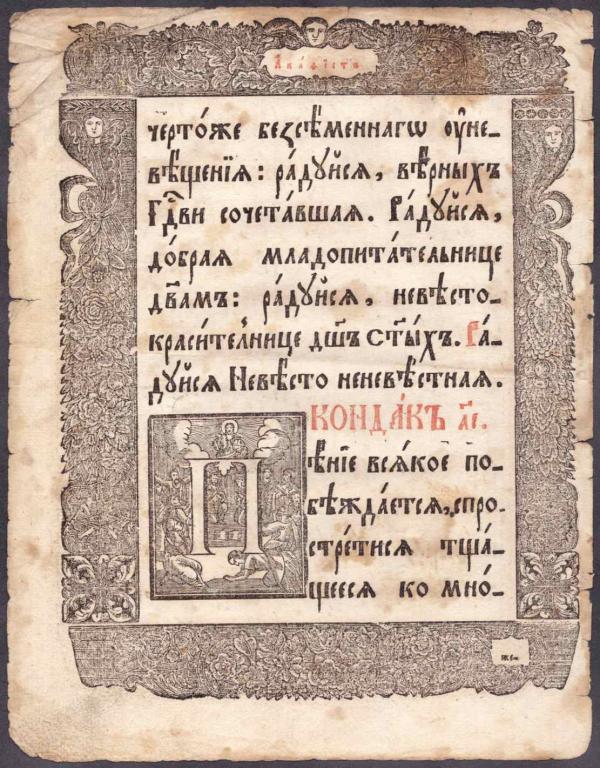 Акаѳїстъ
чертóже безсѣ́меннагѡ ᲂу҆не-
вѣ́щенїѧ: рáдуйсѧ, вѣ́рныхъ
Гдⷭ҇ви сочетáвшаѧ. Рáдуйсѧ,
дóбраѧ младопитáтельнице
дв҃амъ: рáдуйсѧ, невѣ́сто-
краси́телнице дш҃ъ ст҃ы́хъ. Рá-
дуйсѧ Невѣ́сто неневѣ́стнаѧ.
КОНДА́КЪ а҃і.
П
ѣ́нїе всѧ́кое по-
бѣждáетсѧ, спро-
стрéтисѧ тщá-
щеесѧ ко мнó-